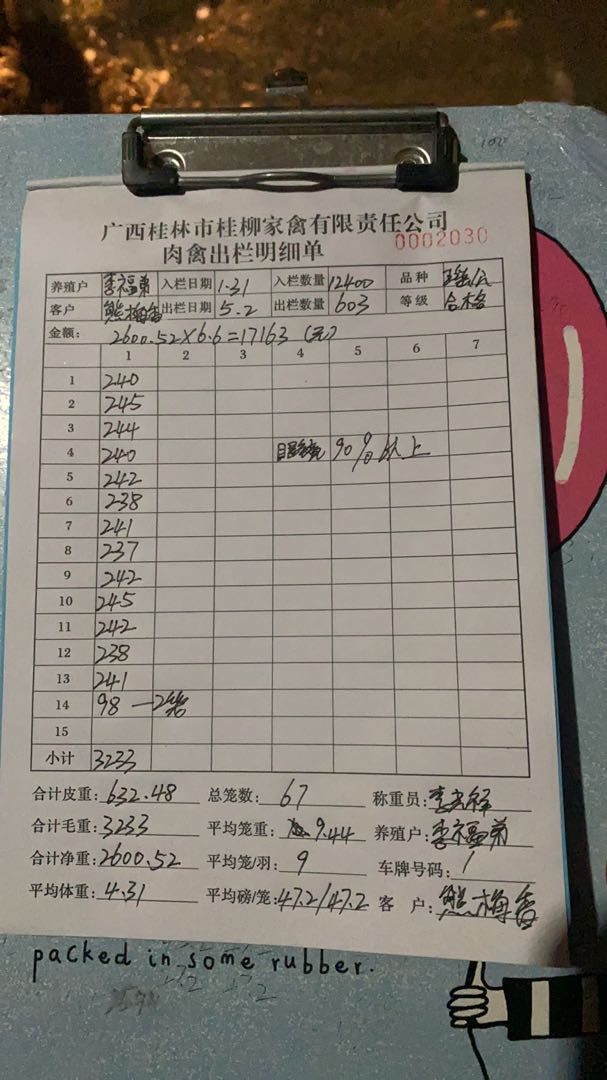 广西桂林市桂柳家禽有限责任公司
肉禽出栏明细单 0002030
养殖户 李福弟 入栏日期 1.31 入栏数量 12400 品种
客户 熊梅香 出栏日期 5.2 出栏数量 603 等级 合格
金额: 2600.52×6.6=17163 (元)
1 2 3 4 5 6 7
1 240
2 245
3 244
4 240 90%以上
5 242
6 238
7 241
8 237
9 242
10 245
11 242
12 238
13 241
14 98 —2笼
15
小计 3233
合计皮重: 632.48 总笼数: 67 称重员:
合计毛重: 3233 平均笼重: 9.44 养殖户: 李福弟
合计净重: 2600.52 平均笼/羽: 9 车牌号码: /
平均体重: 4.31 平均磅/笼: 47.2/47.2 客 户: 熊梅香
packed in some rubber.